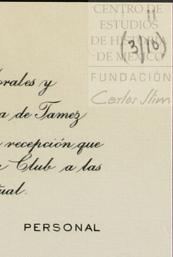 CENTRO DE
ESTUDIOS
DE HISTORIA
DE MÉXICO
11
(3/18)
FUNDACIÓN
Carlos Slim
orales y
a de Tamez
recepción que
Club a las
ual.
PERSONAL